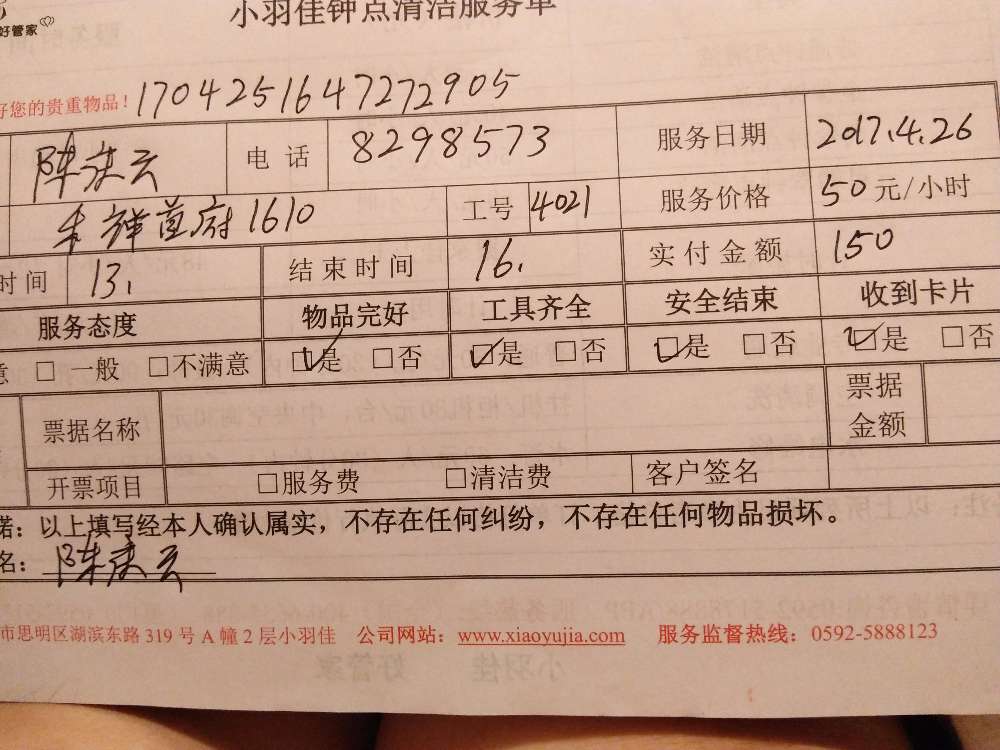 小羽佳钟点清洁服务单
好管家
好您的贵重物品！ 1704251647272905
陈庆云 电话 8298573 服务日期 2017.4.26
首府1610 工号 4021 服务价格 50元/小时
时间 13. 结束时间 16. 实付金额 150
服务态度 物品完好 工具齐全 安全结束 收到卡片
意 □ 一般 □不满意 ☑是 □否 ☑是 □否 ☑是 □否 ☑是 □否
票据名称 票据金额
开票项目 □服务费 □清洁费 客户签名
诺：以上填写经本人确认属实，不存在任何纠纷，不存在任何物品损坏。
名：陈庆云
市思明区湖滨东路 319 号 A 幢 2 层小羽佳 公司网站：www.xiaoyujia.com 服务监督热线：0592-5888123